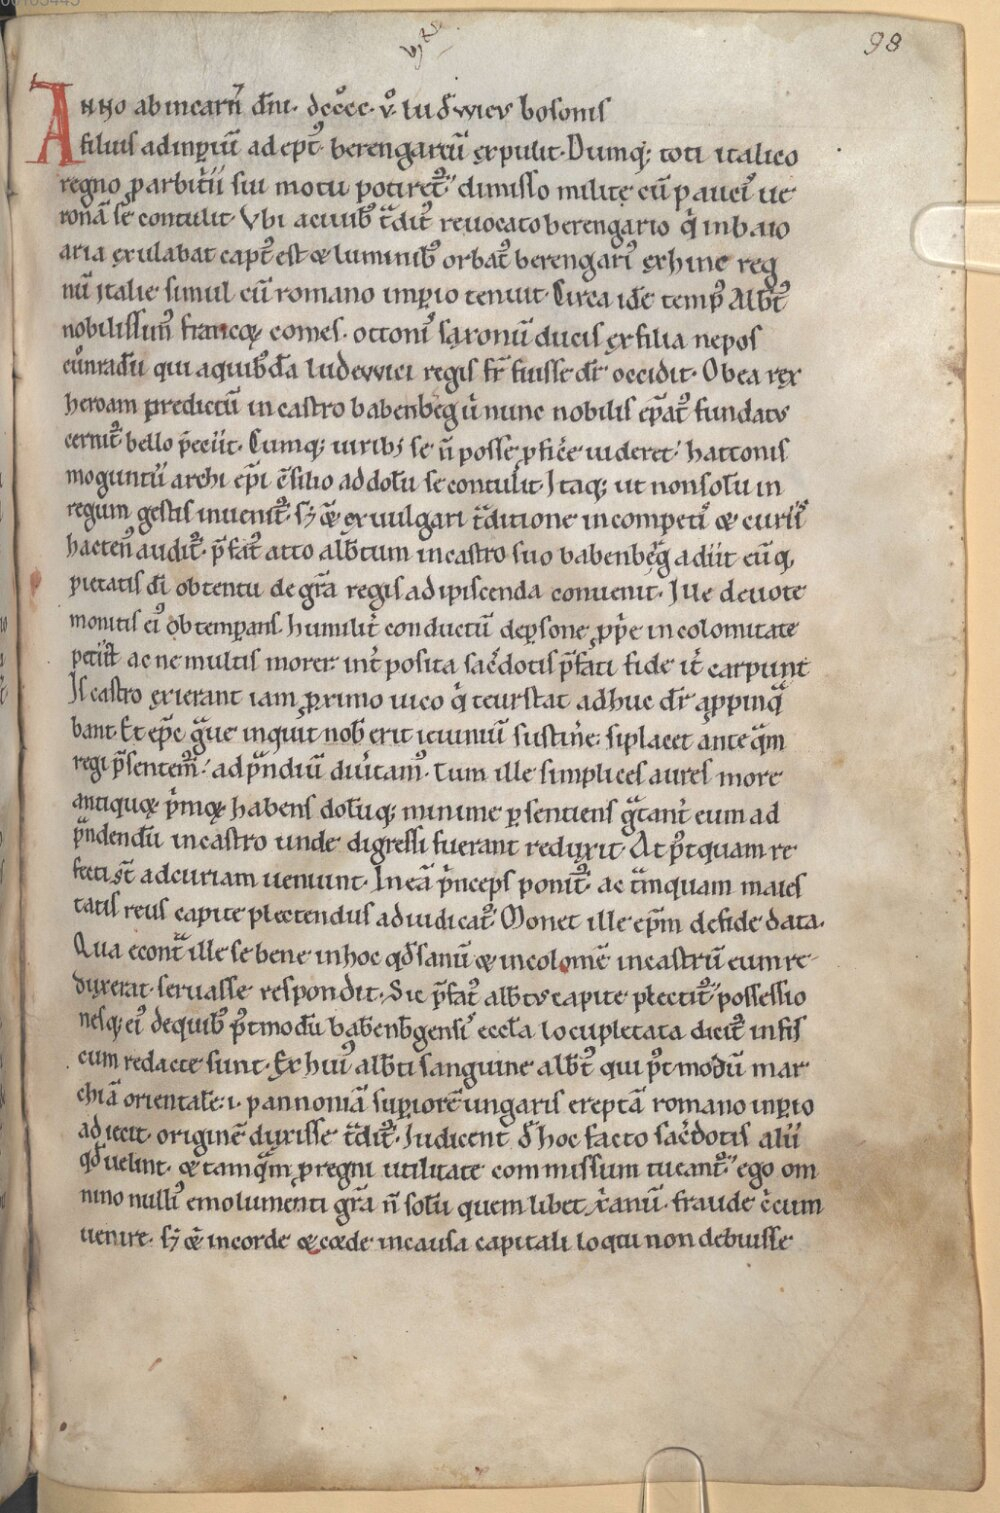 98
Anno ab incarñ dñi. dcccc. v. ludwicus bosonis
filius ad inperiū adept᷒ berengariū expulit. Dumq; toti italico
regno p arbitrii sui motu potiret᷒ dimisso milite cū paucis ue
ronā se contulit. Vbi a ciuib᷒ tdit᷒ reuocato berengario q̇ in baio
aria exulabat capt᷒ est & luminib᷒ orbat᷒ berengari᷒ exhinc reg
nū italie simul cū romano imp̱io tenuit. Circa idē temp᷒ Albt᷒
nobilissim᷒ francoꝝ comes. ottonis saxonū ducis ex filia nepos
cůnradū qui a quib᷒dā ludewici regis fr̄ fuisse dr̄ occidit. Ob ea rex
heroam predictū in castro babenbeg u̇ nunc nobilis ep̄at᷒ fundatus
cernit᷒ bello p̄cciit. Cumq; uirib; se n̄ posse p̱ficēe uideret hattonis
moguntiī archi ep̄i c̄silio ad dolū se contulit. Itaq; ut non solū in
regum gestis inuenit᷒. sꝫ & ex uulgari tditione in compet̄ & curiī
hacten᷒ audit᷒. p̄fat᷒ atto albtum in castro suo babenbeg adiit eūq,
pietatis dī obtentu de grā regis adipiscenda conuenit. Ille deuote
monitis ei᷒ obtemp̱ans humilit̄ conductū de p̱sone pp̄e incolomitate
petiit ac ne multis morer int̄ posita sac̄dotis p̄fati fide it̄ carpunt
Is castro exierant iam p̱ximo uico q̇ teurstat adhuc dr̄ appinq̄
bant. Et ep̄c gue inquit nob̄ erit ieiuniū sustin̄e. si placet ante qm
regi p̄sentem᷒ ad pndiū diūtam᷒. Tum ille simplices aures more
antiquoꝝ p̄moꝝ habens dolūq; minime p̱sentiens gtant̄ eum ad
pndendū in castro unde digressi fuerant reduxit. At p᷒tquam re
fecti st̄ ad curiam ueniunt. In eā p̄nceps ponit᷒ ac tmquam maies
tatis reus capite plectendus adiudicat᷒. Monet ille ep̄m de fide data.
Qua econt ille se bene in hoc qd̄ sanū & incolomē in castrū eum re
duxerat. seruasse respondit. Sic p̄fat᷒ albtus capite plectit᷒ possessio
nesq; ei᷒ de quib᷒ p᷒tmodū babenbgensi᷒ eccl̄a locupletata dicit᷒ in fis
cum redacte sunt. Ex hui᷒ albti sanguine albt᷒ qui p᷒t modū mar
chiā orientalē .i. pannoniā sup̱iorē ungaris ereptā romano inp̱io
adiecit. originē duxisse tdit᷒. Iudicent d̄ hoc facto sac̄dotis alii
qd̄ uelint. & tamqm p̱ regni utilitate commissum tueant᷒ ego om
nino nulli᷒ emolumenti grā n̄ solū quem libet xanū. fraude c̄cum
uenire. sꝫ & in corde & corde in causa capitali loqtu non debuisse